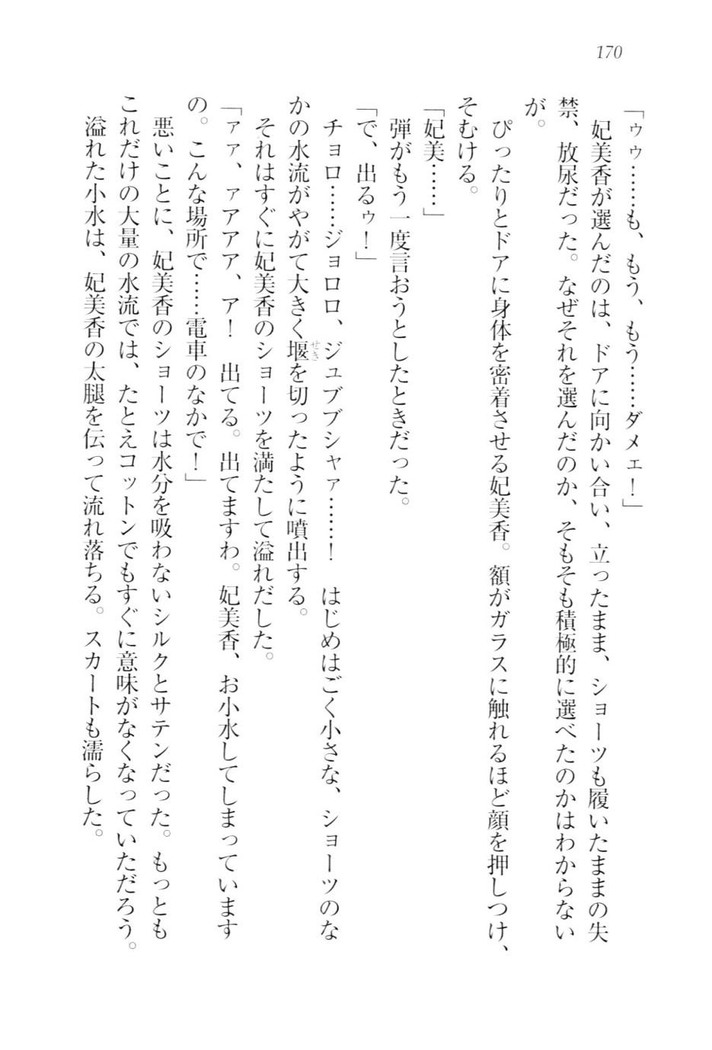 170
「ゥゥ……も、もう、もう……ダメェ！」
妃美香が選んだのは、ドアに向かい合い、立ったまま、ショーツも履いたままの失
禁、放尿だった。なぜそれを選んだのか、そもそも積極的に選べたのかはわからない
が。
ぴったりとドアに身体を密着させる妃美香。額がガラスに触れるほど顔を押しつけ、
そむける。
「妃美……」
弾がもう一度言おうとしたときだった。
「で、出るゥ！」
チョロ……ジョロロ、ジュブブシャァ……！　はじめはごく小さな、ショーツのな
かの水流がやがて大きく堰せきを切ったように噴出する。
それはすぐに妃美香のショーツを満たして溢れだした。
「ァァ、ァアアア、ア！　出てる。出てますわ。妃美香、お小水してしまっています
の。こんな場所で……電車のなかで！」
悪いことに、妃美香のショーツは水分を吸わないシルクとサテンだった。もっとも
これだけの大量の水流では、たとえコットンでもすぐに意味がなくなっていただろう。
溢れた小水は、妃美香の太腿を伝って流れ落ちる。スカートも濡らした。